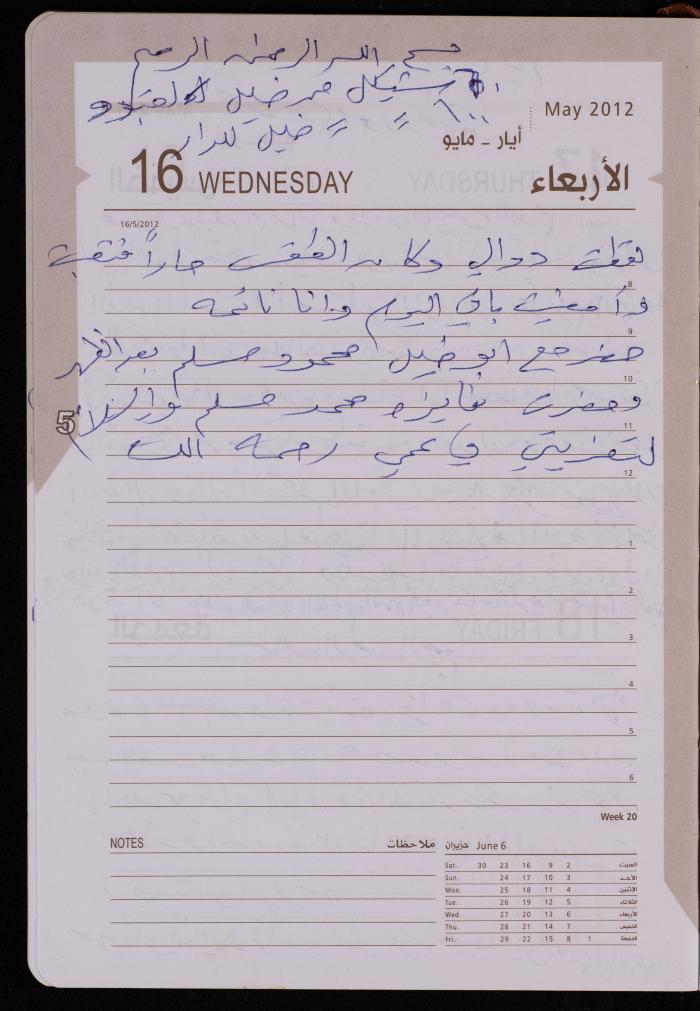 بسم الله الرحمن الرحيم
شيكل من خليل
١٠٠ = = خليل للدار
May 2012
أيار - مايو
16 WEDNESDAY
الأربعاء
16/5/2012
لقطت دوالي وكان الطقس حاراً فتعبت
8
وأمضيت باقي اليوم وأنا نائمة
9
حضر مع أبو خليل محمود مسلم بعد الظهر
10
وحضرت فايزة محمد مسلم
5
11
لتعزيتي في عمي رحمه الله
12
1
2
3
4
5
6
Week 20
NOTES ملاحظات
حزيران June 6
Sat. 30 23 16 9 2 السبت
Sun. 24 17 10 3 الأحد
Mon. 25 18 11 4 الإثنين
Tue. 26 19 12 5 الثلاثاء
Wed. 27 20 13 6 الأربعاء
Thu. 28 21 14 7 الخميس
Fri. 29 22 15 8 1 الجمعة